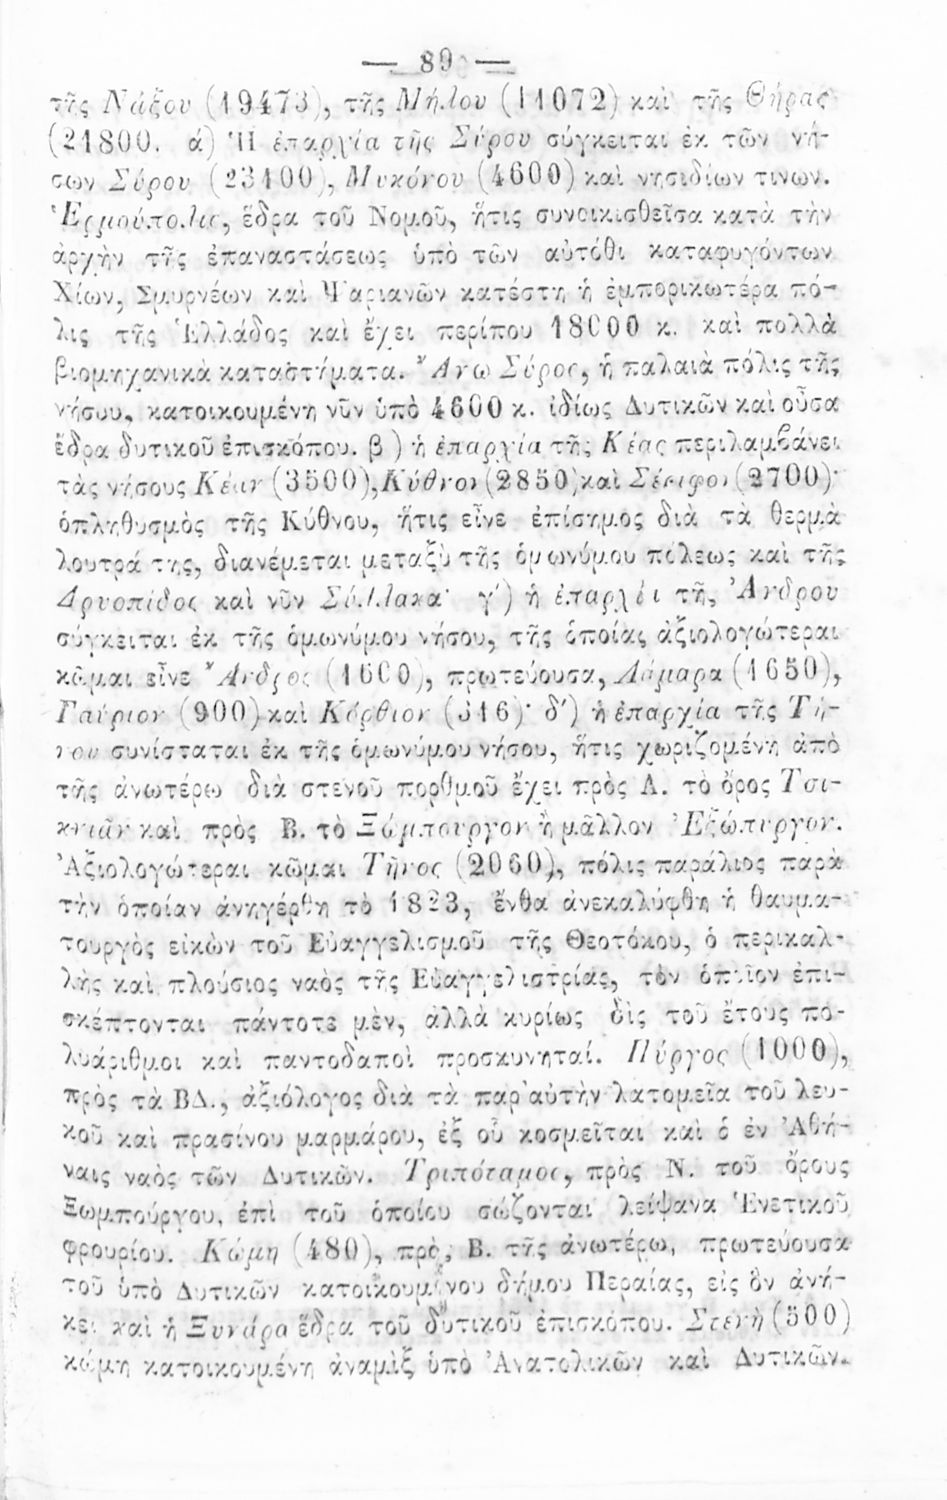 — 89 —
τῆς Νάξου (19473), τῆς Μήλου (11072) καὶ τῆς Θήρας
(21800. ά) Ἡ ἐπαρχία τῆς Σύρου σύγκειται ἐκ τῶν νή-
σων Σύρου (23100), Μυκόνου (4600) καὶ νησιδίων τινων.
Ἑρμούπολις, ἕδρα τοῦ Νομοῦ, ἥτις συνοικισθεῖσα κατὰ τὴν
ἀρχὴν τῆς ἐπαναστάσεως ὑπὸ τῶν αὐτόθι καταφυγόντων
Χίων, Σμυρνέων καὶ Ψαριανῶν κατέστη ἡ ἐμπορικωτέρα πό-
λις τῆς Ἑλλάδος καὶ ἔχει περίπου 18000 κ. καὶ πολλὰ
βιομηχανικὰ καταστήματα. Ἄνω Σύρος, ἡ παλαιὰ πόλις τῆς
νήσου, κατοικουμένη νῦν ὑπὸ 4600 κ. ἰδίως Δυτικῶν καὶ οὖσα
ἕδρα δυτικοῦ ἐπισκόπου. β) ἡ ἐπαρχία τῆς Κέας περιλαμβάνει
τὰς νήσους Κέαν (3500), Κύθνον (2850) καὶ Σέριφον (2700)·
ὁπληθυσμὸς τῆς Κύθνου, ἥτις εἶνε ἐπίσημος διὰ τὰ θερμὰ
λουτρά της, διανέμεται μεταξὺ τῆς ὁμωνύμου πόλεως καὶ τῆς
Δρυοπίδος καὶ νῦν Σύλλακα· γ΄) ἡ ἐπαρχία τῆς Ἄνδρου
σύγκειται ἐκ τῆς ὁμωνύμου νήσου, τῆς ὁποίας ἀξιολογώτεραι
κῶμαι εἶνε Ἄνδρος (1600), πρωτεύουσα, Λάμαρα (1650),
Γαύριον (900) καὶ Κόρθιον (316)· δ΄) ἡ ἐπαρχία τῆς Τή-
νου συνίσταται ἐκ τῆς ὁμωνύμου νήσου, ἥτις χωριζομένη ἀπὸ
τῆς ἀνωτέρω διὰ στενοῦ πορθμοῦ ἔχει πρὸς Α. τὸ ὄρος Τσι-
κνιᾶν καὶ πρὸς Β. τὸ Ξώμπουργον ἢ μᾶλλον Ἐξώπυργον.
Ἀξιολογώτεραι κῶμαι Τῆνος (2060), πόλις παράλιος παρὰ
τὴν ὁποίαν ἀνηγέρθη τὸ 1823, ἔνθα ἀνεκαλύφθη ἡ θαυμα-
τουργὸς εἰκὼν τοῦ Εὐαγγελισμοῦ τῆς Θεοτόκου, ὁ περικαλ-
λὴς καὶ πλούσιος ναὸς τῆς Εὐαγγελιστρίας, τὸν ὁποῖον ἐπι-
σκέπτονται πάντοτε μὲν, ἀλλὰ κυρίως δὶς τοῦ ἔτους πο-
λυάριθμοι καὶ παντοδαποὶ προσκυνηταί. Πύργος (1000),
πρὸς τὰ ΒΔ., ἀξιόλογος διὰ τὰ παρ' αὐτὴν λατομεῖα τοῦ λευ-
κοῦ καὶ πρασίνου μαρμάρου, ἐξ οὗ κοσμεῖται καὶ ὁ ἐν Ἀθή-
ναις ναὸς τῶν Δυτικῶν. Τριπόταμος, πρὸς Ν. τοῦ ὄρους
Ξωμπούργου, ἐπὶ τοῦ ὁποίου σώζονται λείψανα Ἑνετικοῦ
φρουρίου. Κώμη (480), πρὸς Β. τῆς ἀνωτέρω, πρωτεύουσα
τοῦ ὑπὸ Δυτικῶν κατοικουμένου δήμου Περαίας, εἰς ὃν ἀνή-
κει καὶ ἡ Ξυνάρα ἕδρα τοῦ δυτικοῦ ἐπισκόπου. Στενὴ (500)
κώμη κατοικουμένη ἀναμὶξ ὑπὸ Ἀνατολικῶν καὶ Δυτικῶν.